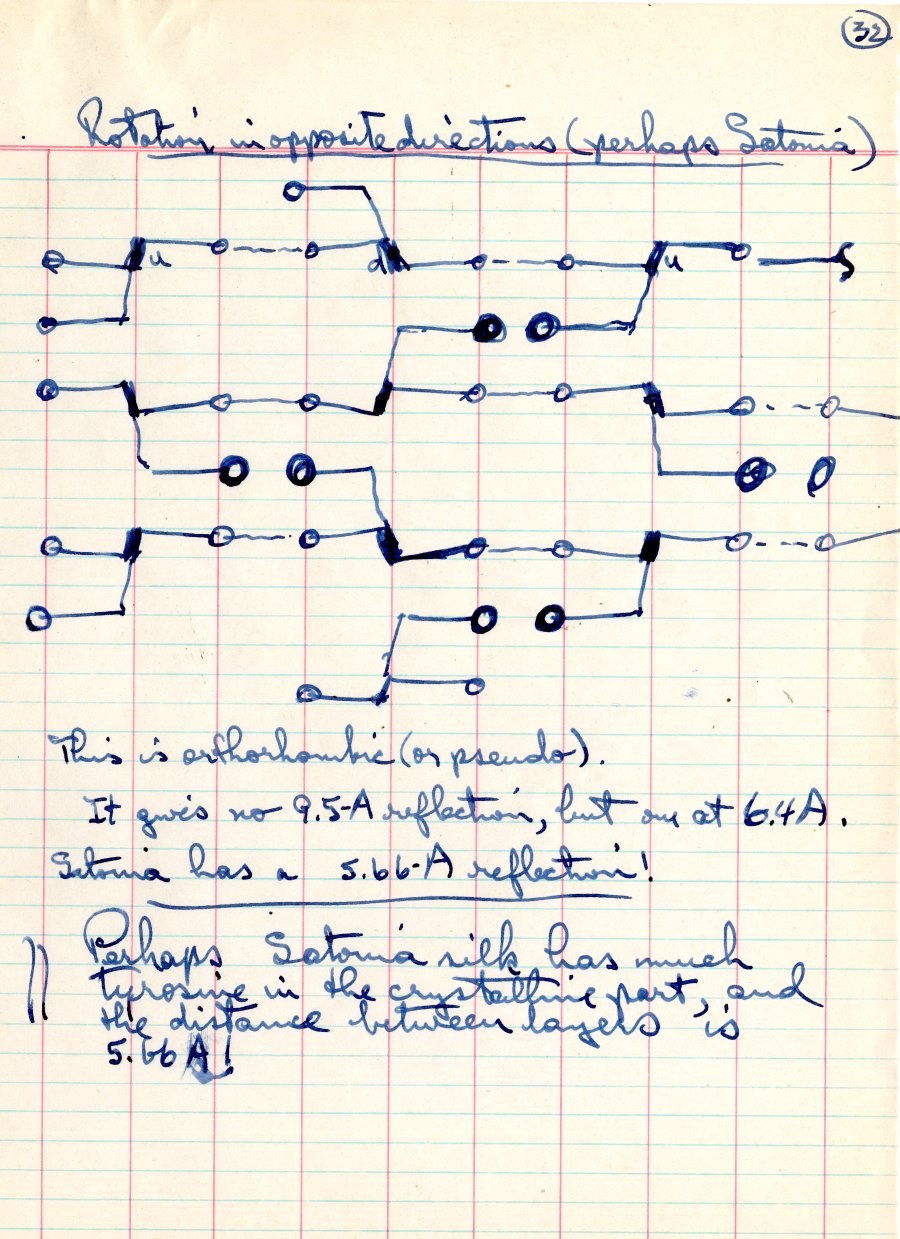 32
Rotation in opposite directions (perhaps Satonia)
u
d
u
This is orthorhombic (or pseudo).
It gives no 9.5-A reflection, but one at 6.4A.
Satonia has a 5.66-A reflection!
Perhaps Satonia silk has much
tyrosine in the crystalline part, and
the distance between layers is
5.66A!